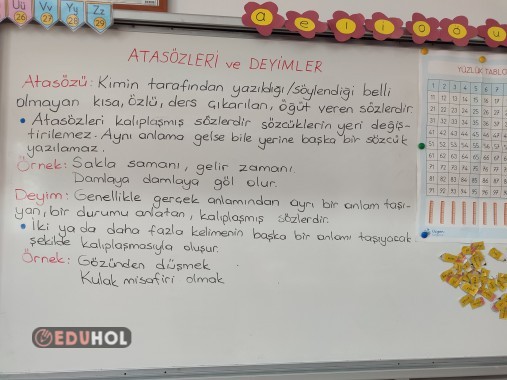 Uu Vv Yy Zz
26 27 28 29
a e ı i o ö u
ATASÖZLERİ ve DEYİMLER
Atasözü: Kimin tarafından yazıldığı/söylendiği belli
olmayan kısa, özlü, ders çıkarılan, öğüt veren sözlerdir.
• Atasözleri kalıplaşmış sözlerdir sözcüklerin yeri değiş-
tirilemez. Aynı anlama gelse bile yerine başka bir sözcük
yazılamaz.
Örnek: Sakla samanı, gelir zamanı.
Damlaya damlaya göl olur.
Deyim: Genellikle gerçek anlamından ayrı bir anlam taşı-
yan, bir durumu anlatan, kalıplaşmış sözlerdir.
• İki ya da daha fazla kelimenin başka bir anlamı taşıyacak
şekilde kalıplaşmasıyla oluşur.
Örnek: Gözünden düşmek
Kulak misafiri olmak
EDUHOL
YÜZLÜK TABLO
1 2 3 4 5 6 7
11 12 13 14 15 16 17
21 22 23 24 25 26 27
31 32 33 34 35 36 37
41 42 43 44 45 46 47
51 52 53 54 55 56 57
61 62 63 64 65 66 67
71 72 73 74 75 76 77
81 82 83 84 85 86 87
91 92 93 94 95 96 97